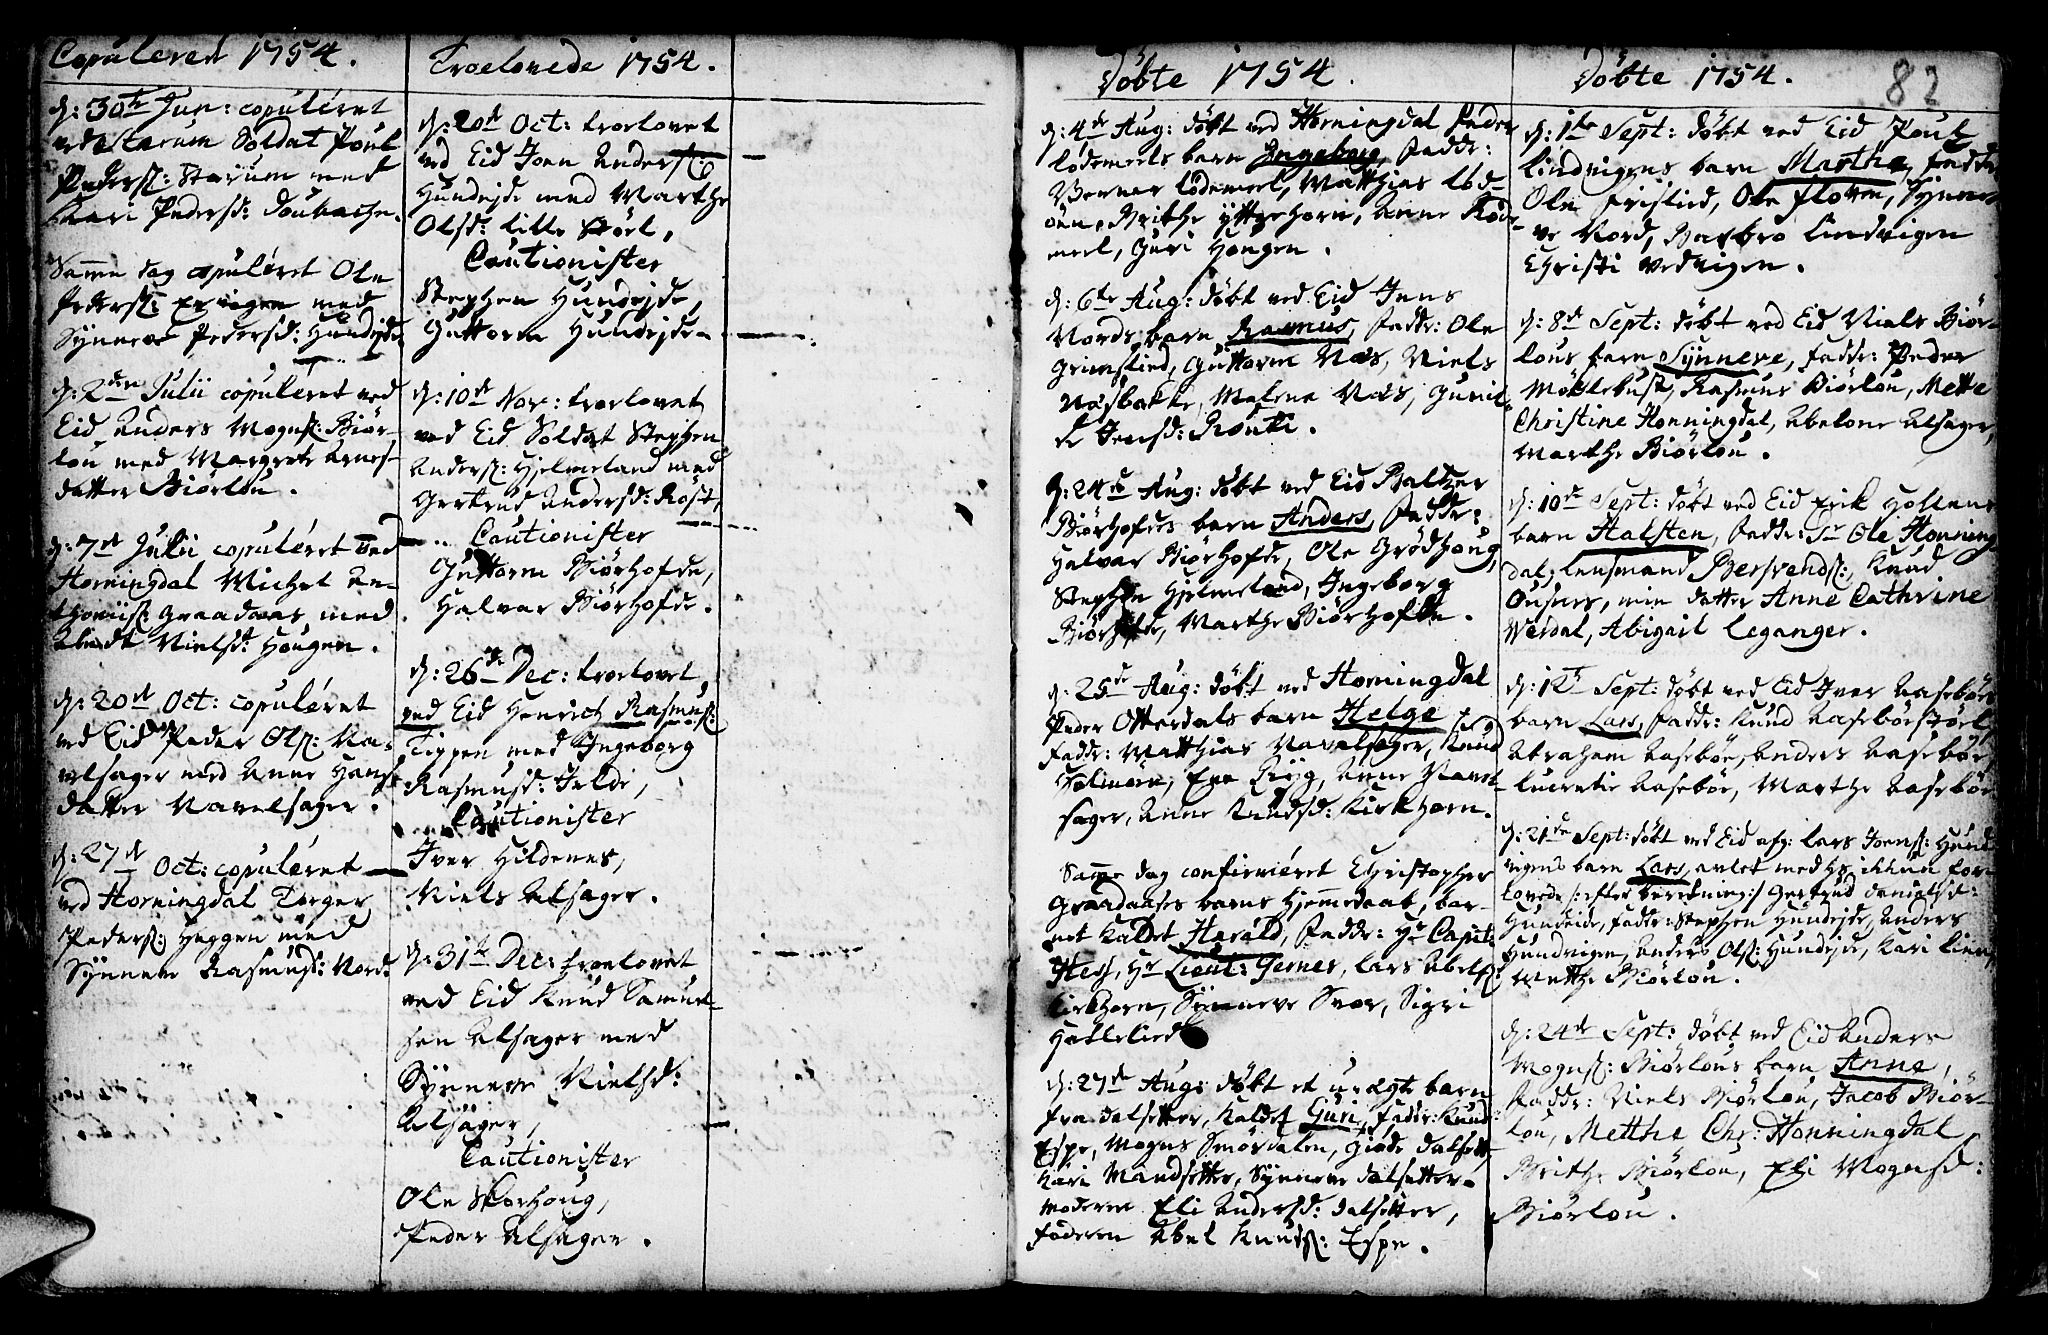 Copuleret 1754.
d: 30te Jun: copuleret
ved Starum Soldat Poul
Peders: Starum med
Kari Pedersd: Doubache.
Samme dag copuleret Ole
Peders: Ervigen med
Synneve Pedersd: Hundejde
d: 2den Julii copuleret ved
Eid Anders Mogns: Biør-
lou med Margrete Arnes-
datter Biørlou.
d: 7de Julii copuleret ved
Horningdal Michel An-
thoniis: Graadaas, med
Nielsd: Hougen.
d: 20de Oct: copuleret
ved Eid Peder Ols: Na-
velsager med Anne Hans-
datter Navelsager.
d: 27de Oct: copuleret
ved Horningdal Torger
Peders: Heggen med
Synneve Rasmusd: Nord.
Troelovede 1754.
d: 20de Oct: troelovet
ved Eid Joen Anders:
Hundejde med Marthe
Olsd: lille Støel,
Cautionister
Stephen Hundejde,
Guttorm Hundejde
d: 10de Nov: troelovet
ved Eid Soldat Stephen
Anders: Hjelmeland med
Gertrud Andersd: Røst,
Cautionister
Guttorm Biørhofde,
Halvar Biørhofde.
d: 26de Dec: troelovet
ved Eid Henrich Rasmus:
Tippen med Ingeborg
Rasmusd: Felde,
Cautionister
Iver Hildenes,
Niels Alsager.
d: 31te Dec: troelovet
ved Eid Knud Samuel-
sen Alsager med
Synneve Nielsd:
Alsager,
Cautionister
Ole Skarhoug,
Peder Alsager.
Døbte 1754.
d: 4de Aug: døbt ved Horningdal Peder
Lødemels barn Ingeborg, Faddr:
Berner Lødemel, Matthias Lød-
Brithe Yttrehorn, Anne Løde-
meel, Guri Hougen.
d: 6te Aug: døbt ved Eid Jens
Nords barn Rasmus, Faddr: Ole
Grimslied, Guttorm Næs, Niels
Næsbakke, Malene Næs, Gunil-
de Jensd: Rønti.
d: 24de Aug: døbt ved Eid Baltzer
Biørhofdes barn Anders, Faddr:
Halvar Biørhofde, Ole Grødhoug,
Stephen Hjelmeland, Ingeborg
Biørhofde, Marthe Biørhofde.
d: 25de Aug: døbt ved Horningdal
Peder Otterdals barn Helge
Faddr: Matthias Navelsager, Knud
Anne Navel-
sager, Anne Knudsd: Kirkhorn.
Samme dag confirmeret Christopher
Graadaases barns hjemmedaab, bar-
net kaldet Harald, Faddr: Hr Capit:
Hess, Hr Lieut: Gernes, Lars Abels:
Kirkhorn, Synneve Svor, Sigri
Hattelied
d: 27de Aug: døbt et uægte barn
fra Dalsetter, kaldet Guri, Faddr: Knud
Espe, Mogns Smørdalen, Giøde Dalsett,
Kari Mandsetter, Synneve Dalsetter
moderen Eli Andersd: Dalsetter,
Faderen Abel Knuds: Espe.
Døbte 1754.
82
d: 1te Sept: døbt ved Eid Poul
Lindvigens barn Marthe, Faddr
Ole Frislied, Ole Floten, Synne-
ve Nord, Barbro Lindvigen
Christi Nedvigen.
d: 8de Sept: døbt ved Eid Niels Biør-
lous barn Synneve, Faddr: Peder
Møklebust, Rasmus Biørlou, Mette
Christine Honningdal, Abelone Alsager,
Marthe Biørlou.
d: 10de Sept: døbt ved Eid Erik Hollens
barn Halsten, Faddr: Sr Ole Honning-
dal, Lensmand Bersvends:, Knud
Ousnes, min datter Anne Cathrine
Werdal, Abigail Leganger.
Sept: døbt ved Eid Iver Aasebøes
barn Lars, Faddr: Knud Aasebøestøel,
Abraham Aasebøe, Anders Aasebøe,
Lucretie Aasebøe, Marthe Aasebøe
d: 21de Sept: døbt ved Eid afg: Lars Joens: Hund-
vigens barn Lars, avlet med
lovede /: efter beretning :/ Gertrud Danielsd:
Hundeide, Faddr: Stephen Hundejde, Anders
Hundvigen, Anders Ols: Hundejde, Kari Lien,
Marthe Biørlou.
d: 24de Sept: døbt ved Eid Anders
Mogns: Biørlous barn Anne,
Faddr: Niels Biørlou, Jacob Biør-
lou, Metthe Chr: Honningdal,
Brithe Biørlou, Eli Mognsd:
Biørlou.